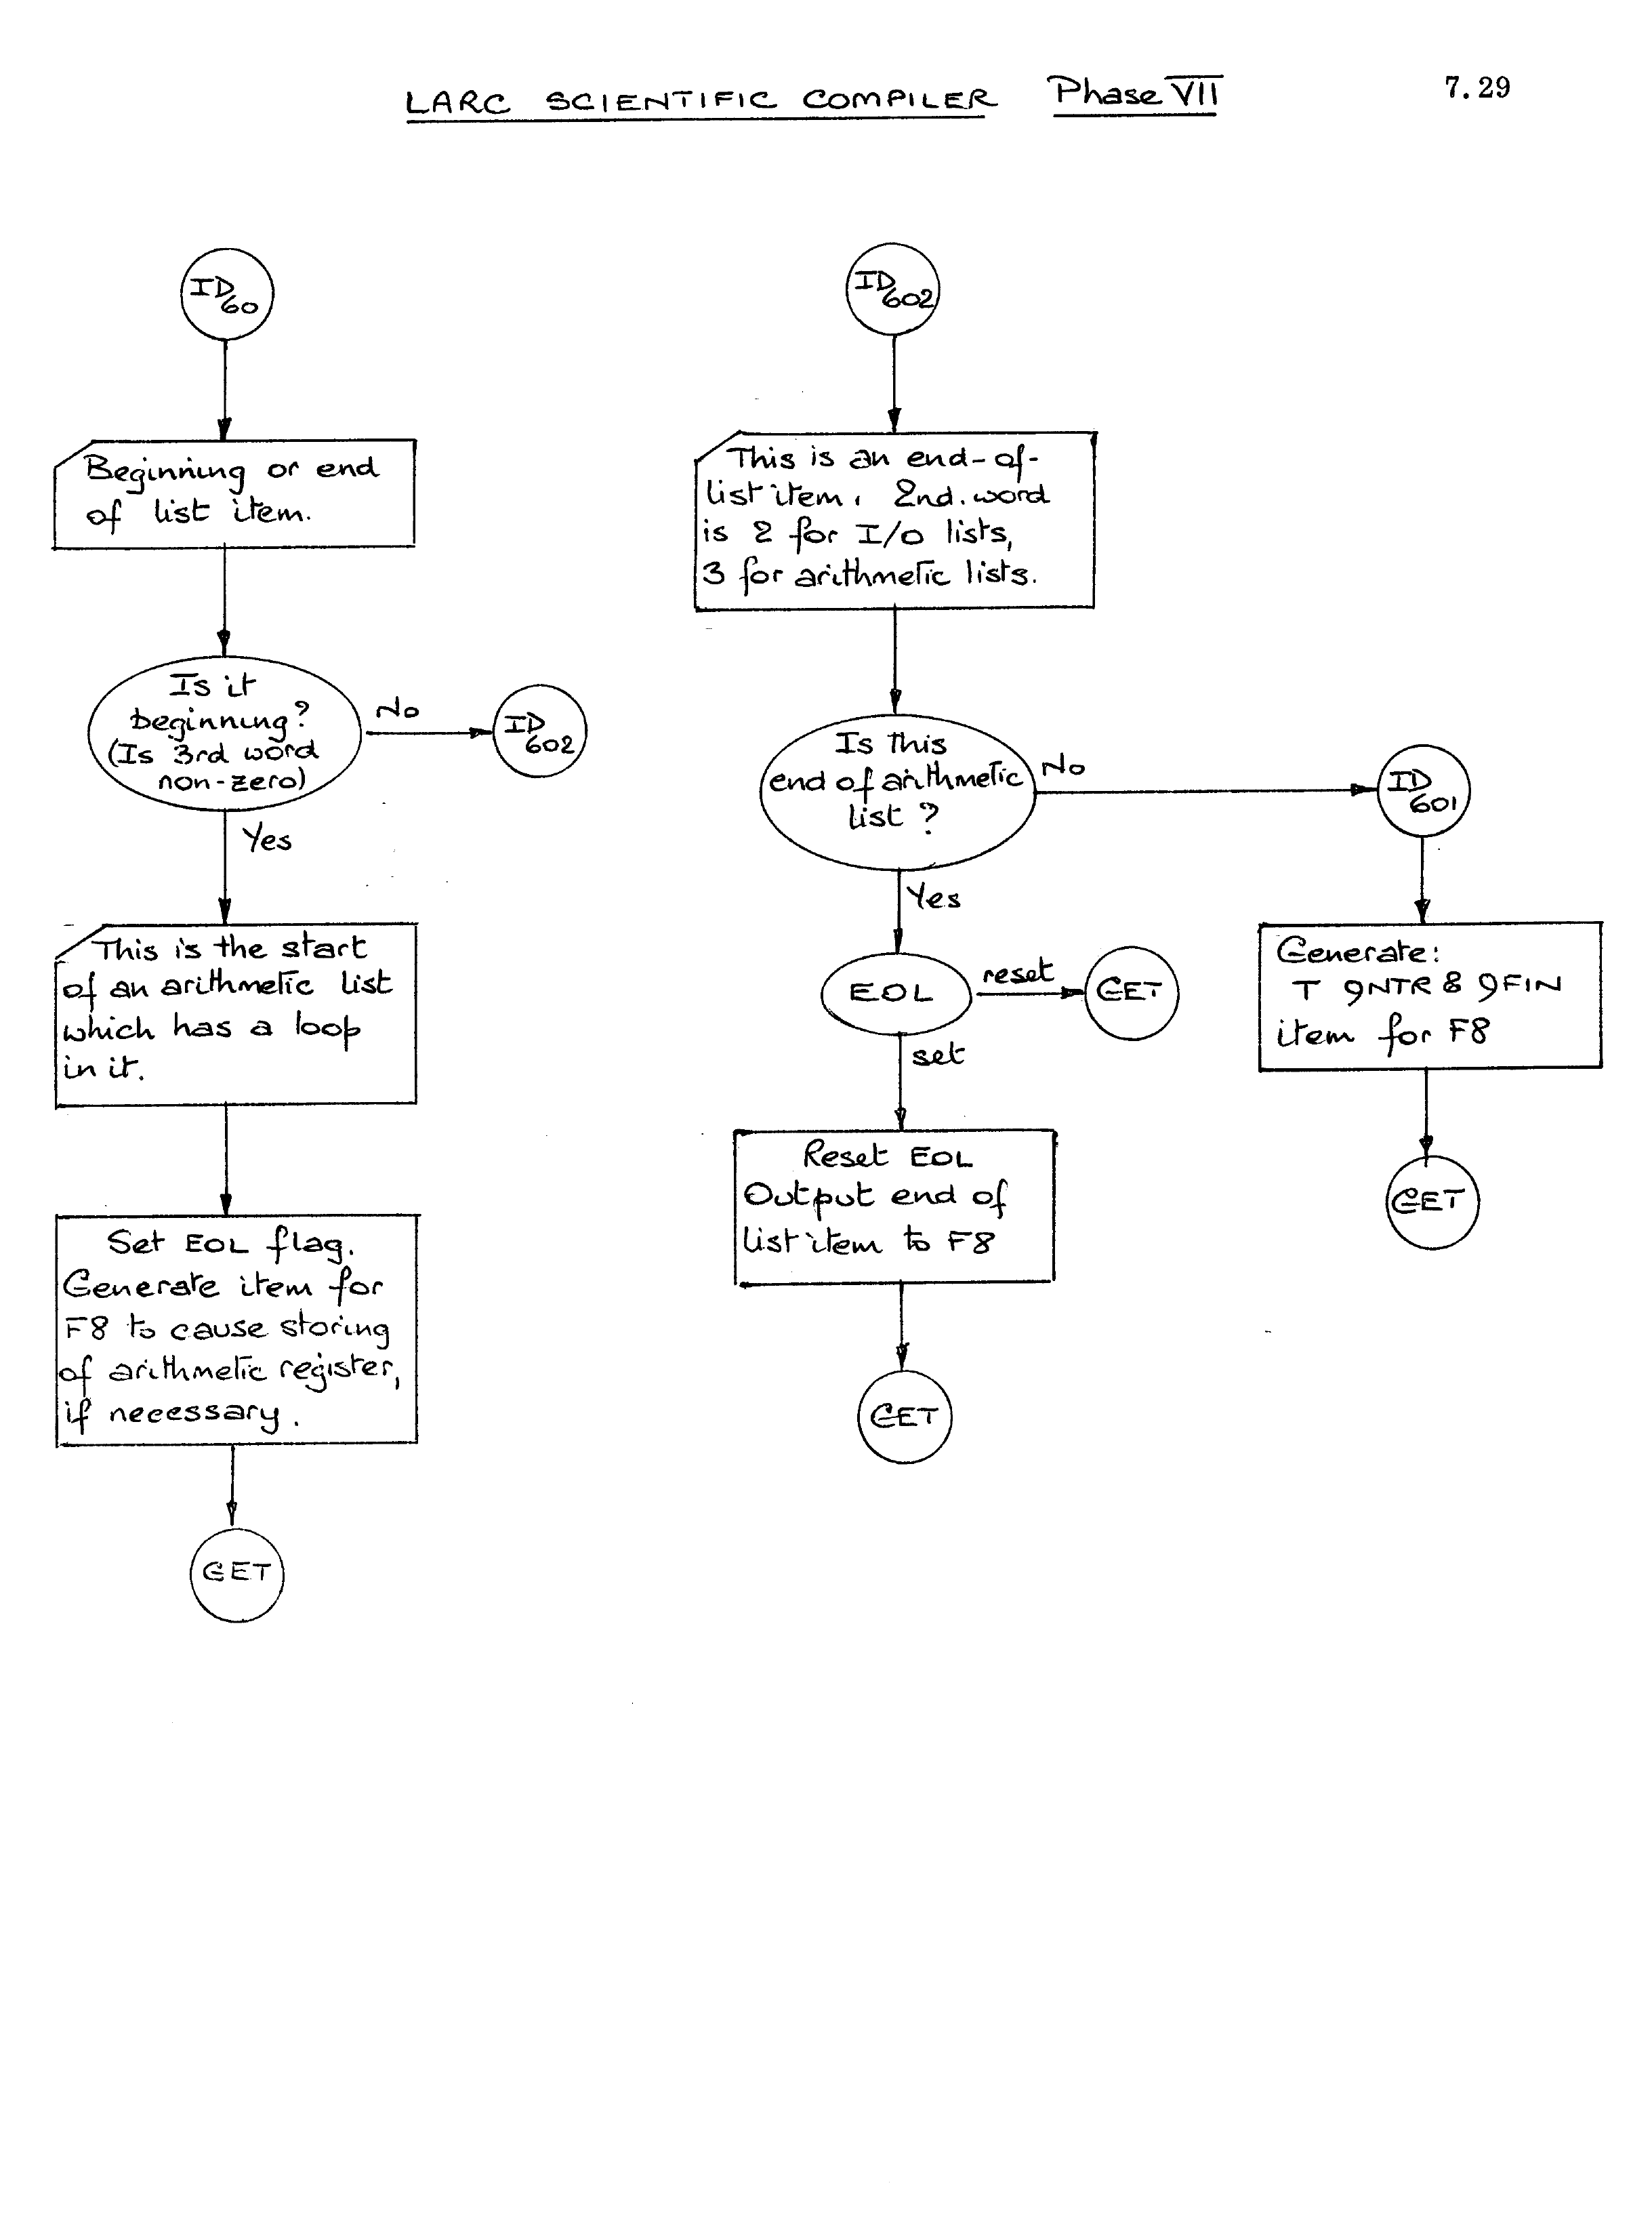 LARC SCIENTIFIC COMPILER Phase VII
7.29
ID
60
Beginning or end
of list item.
Is it
beginning?
(Is 3rd word
non-zero)
No
ID
602
Yes
This is the start
of an arithmetic list
which has a loop
in it.
Set EOL flag.
Generate item for
F8 to cause storing
of arithmetic register,
if necessary.
GET
ID
602
This is an end-of-
list item. 2nd. word
is 2 for I/O lists,
3 for arithmetic lists.
Is this
end of arithmetic
list?
No
ID
601
Yes
Generate:
T 9NTR & 9FIN
item for F8
GET
EOL
reset
GET
set
Reset EOL
Output end of
list item to F8
GET